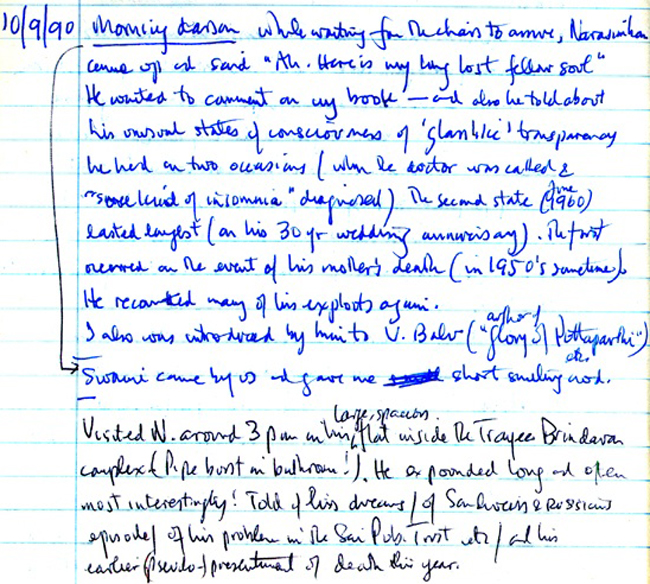 10/9/90 Morning darsan while waiting for the chairs to arrive, Narasimhan
came up and said "Ah. Here is my long lost fellow soul"
He wanted to comment on my book — and also he told about
his unusual states of consciousness of 'glasslike' transparency
he had on two occasions (when the doctor was called &
"some kind of insomnia" diagnosed) The second state (June 1960)
lasted longest (on his 30 yr wedding anniversary). The first
occurred on the event of his mother's death (in 1950's sometime).
He recounted many of his exploits again.
I also was introduced by him to V. Balu (author of "Glory of Puttaparthi")
etc.
Swami came by us and gave me short smiling nod.
Visited N. around 3 pm in his large, spacious flat inside the Trayee Brindavan
complex (Pipe burst in bathroom!). He expounded long and open
most interestingly! Told of his dreams / of & Russians
episode / of his problem in the Sai Pub. Trust etc / and his
earlier (pseudo-) presentiment of death this year.